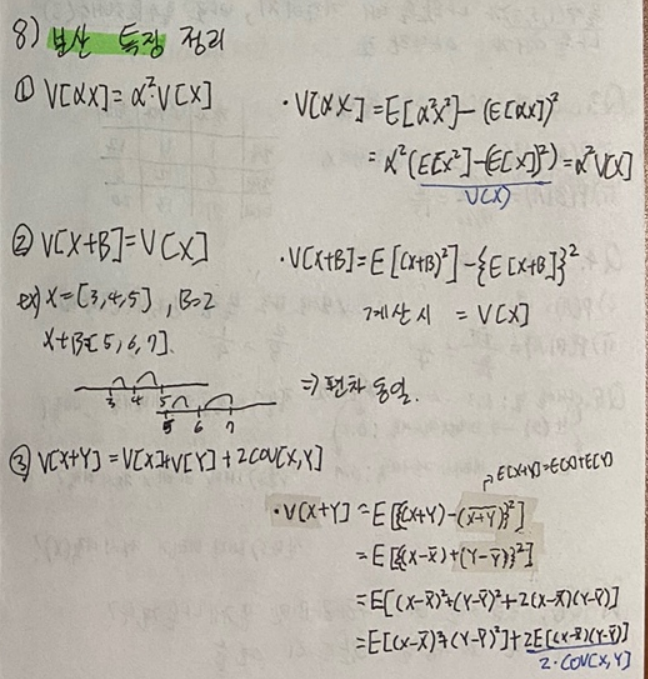 8) 분산 특징 정리
① V[αX] = α²V[X]
· V[αX] = E[α²X²] - (E[αX])²
= α²(E[X²] - (E[X])²) = α²V[X]
V(X)
② V[X+B] = V[X]
· V[X+B] = E[(X+B)²] - {E[X+B]}²
계산 시 = V[X]
ex) X = [3,4,5], B=2
X+B=[5,6,7].
3 4 5
5 6 7
⇒ 편차 동일.
③ V[X+Y] = V[X]+V[Y] + 2COV[X,Y]
E[X+Y]=E(X)+E(Y)
· V[X+Y] = E[{(X+Y)-(X̄+Ȳ)}²]
= E[{(X-X̄)+(Y-Ȳ)}²]
= E[(X-X̄)²+(Y-Ȳ)²+2(X-X̄)(Y-Ȳ)]
= E[(X-X̄)²+(Y-Ȳ)²]+2E[(X-X̄)(Y-Ȳ)]
2·COV[X,Y]